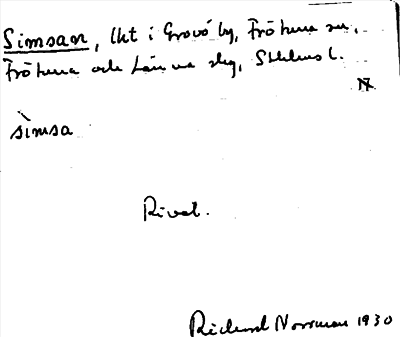 Simsan, lht i Grovö by, Frötuna sn,
Frötuna och Länna skg, Sthlms l.
N
sìmsa
Rival.
Richard Norrman 1930